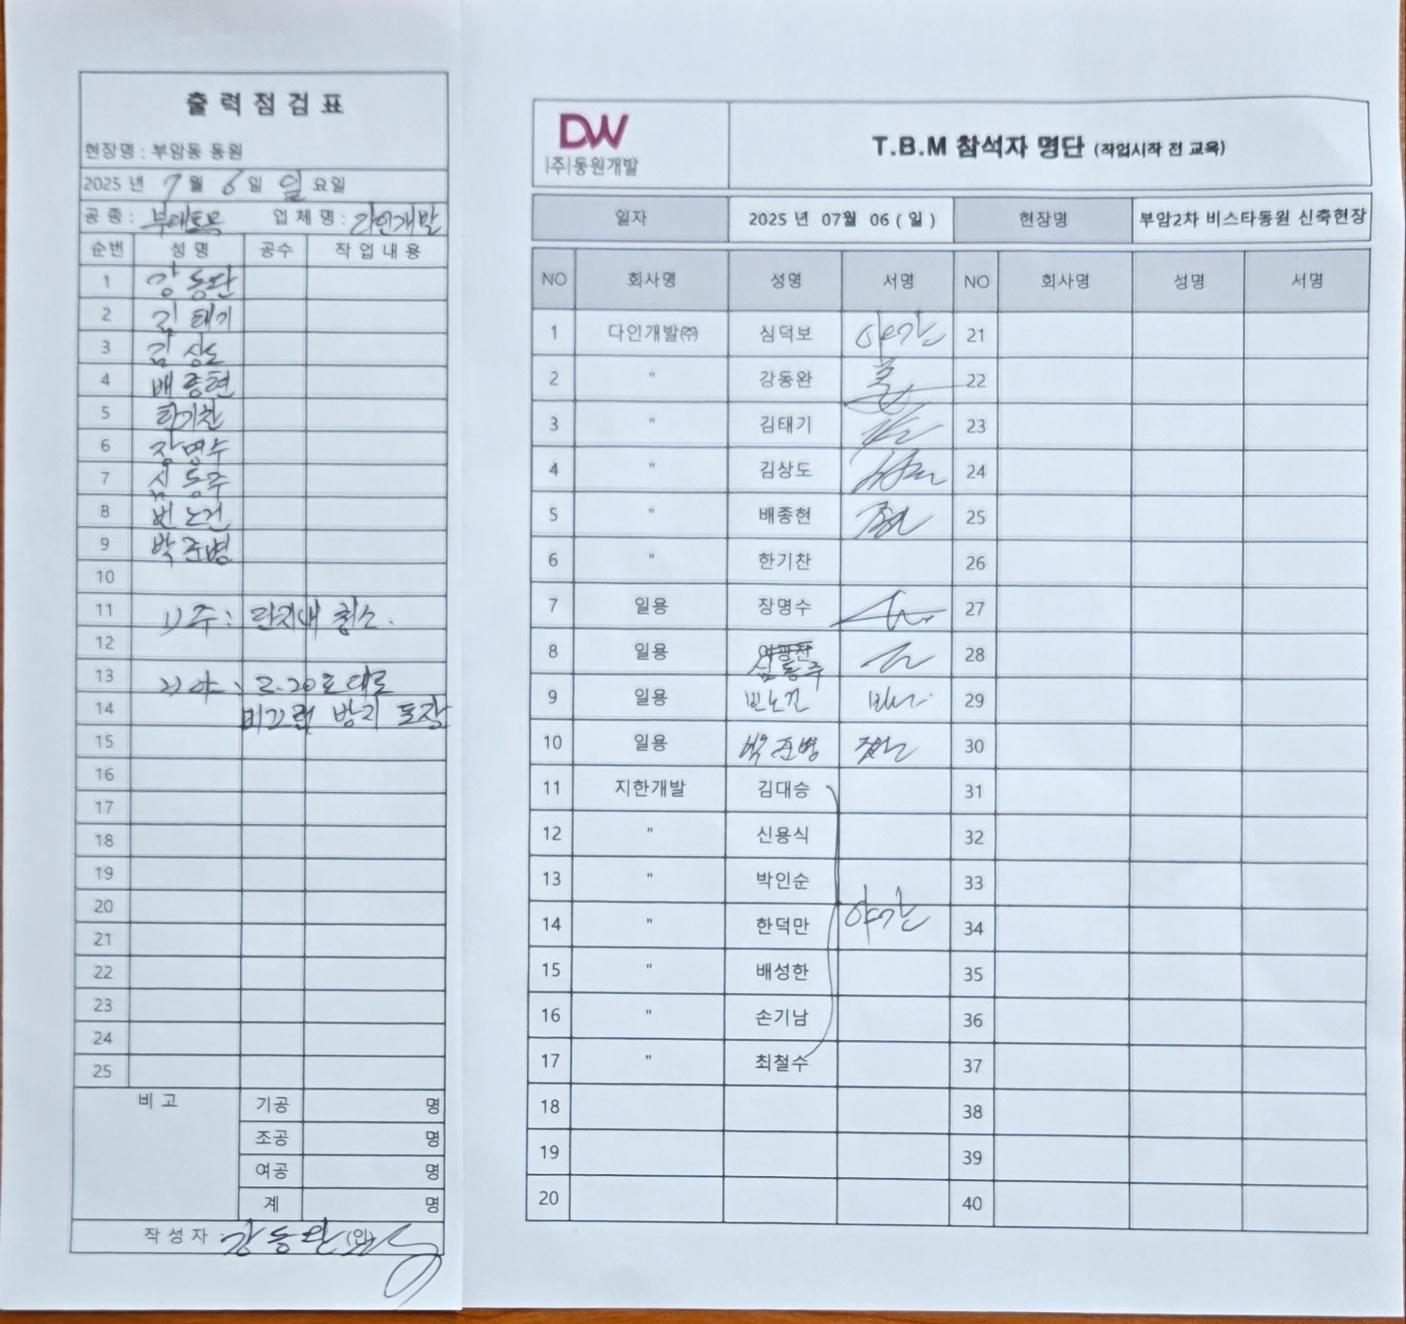 출력점검표
현장명 : 부암동 동원
2025 년 7 월 6 일 일 요일
공 종 : 부대토목 업 체 명 : 다인개발
순번 성 명 공수 작 업 내 용
1 강동완
2 김태기
3 김상도
4 배종현
5 한기찬
6 장명수
7 심동주
8 빈노건
9 박준병
10
11 1) 주 : 단지내 청소.
12
13 2) 야 : 2.20로 대로
14 미끄럼 방지 포장
15
16
17
18
19
20
21
22
23
24
25
비 고 기공 명
조공 명
여공 명
계 명
작 성 자 : 강동완 (인)
DW
|주|동원개발
T.B.M 참석자 명단 (작업시작 전 교육)
일자 2025 년 07월 06 ( 일 ) 현장명 부암2차 비스타동원 신축현장
NO 회사명 성명 서명 NO 회사명 성명 서명
1 다인개발㈜ 심덕보 야간 21
2 " 강동완 22
3 " 김태기 23
4 " 김상도 24
5 " 배종현 25
6 " 한기찬 26
7 일용 장명수 27
8 일용 심동주 28
9 일용 빈노건 29
10 일용 박준병 30
11 지한개발 김대승 31
12 " 신용식 32
13 " 박인순 33
14 " 한덕만 야간 34
15 " 배성한 35
16 " 손기남 36
17 " 최철수 37
18 38
19 39
20 40